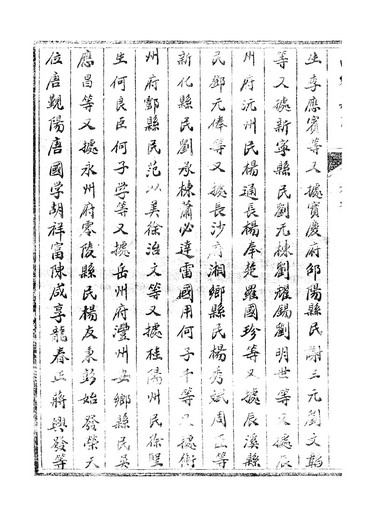 生李應賓等又據寶慶府邵陽縣民謝三元劉文韜
等又據新寧縣民劉元棟劉耀錫劉明世等又據辰
州府沅州民楊通長楊奉楚羅國珍等又據辰溪縣
民鄧元俸等又據長沙府湘鄉縣民楊秀斌周正等
新化縣民劉承棟蕭必達雷國用何子千等又據衡
州府酃縣民范以美徐治文等又據桂陽州民徐聖
生何良臣何子学等又據岳州府澧州安鄉縣民吳
應昌等又據永州府零陵縣民楊友東彭始發榮天
位唐觀陽唐國学胡祥富陳咸享龍春正蔣興發等